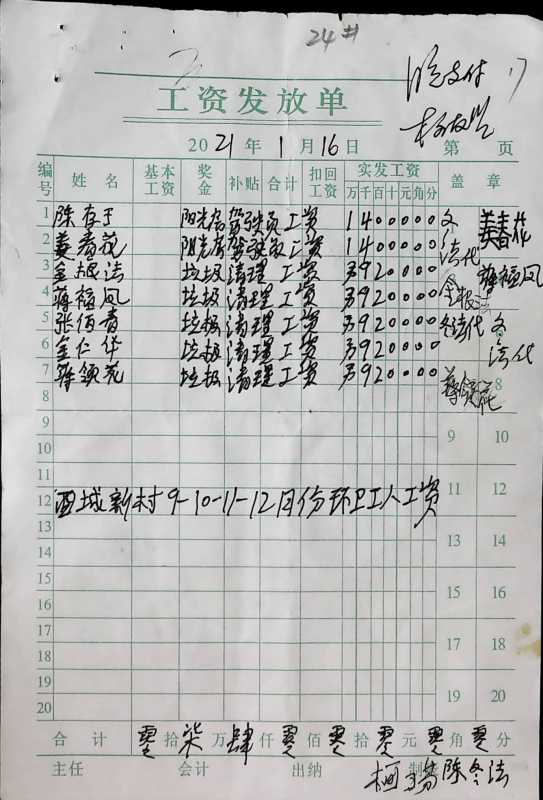 24#
支付
工资发放单
2021年1月16日 第 页
编号 姓名 基本工资 奖金 补贴 合计 扣回工资 实发工资 盖章
万千百十元角分
1 陈存于 阳光房驾驶员工资 1400000 冬
2 姜春花 阳光房驾驶员工资 1400000 法代 姜春花
3 金根法 垃圾清理工资 920000 蒋福凤
4 蒋福凤 垃圾清理工资 920000 金根法
5 张佰青 垃圾清理工资 920000 冬法代 冬
6 金仁华 垃圾清理工资 920000 法代
7 蒋领花 垃圾清理工资 920000 蒋领花 8
8
9 9 10
10
11
12 西城新村9-10-11-12月份环卫工人工资 11 12
13
14 13 14
15
16 15 16
17
18 17 18
19
20 19 20
合计 零拾柒万肆仟零佰零拾零元零角零分
主任 会计 出纳 制 陈冬法